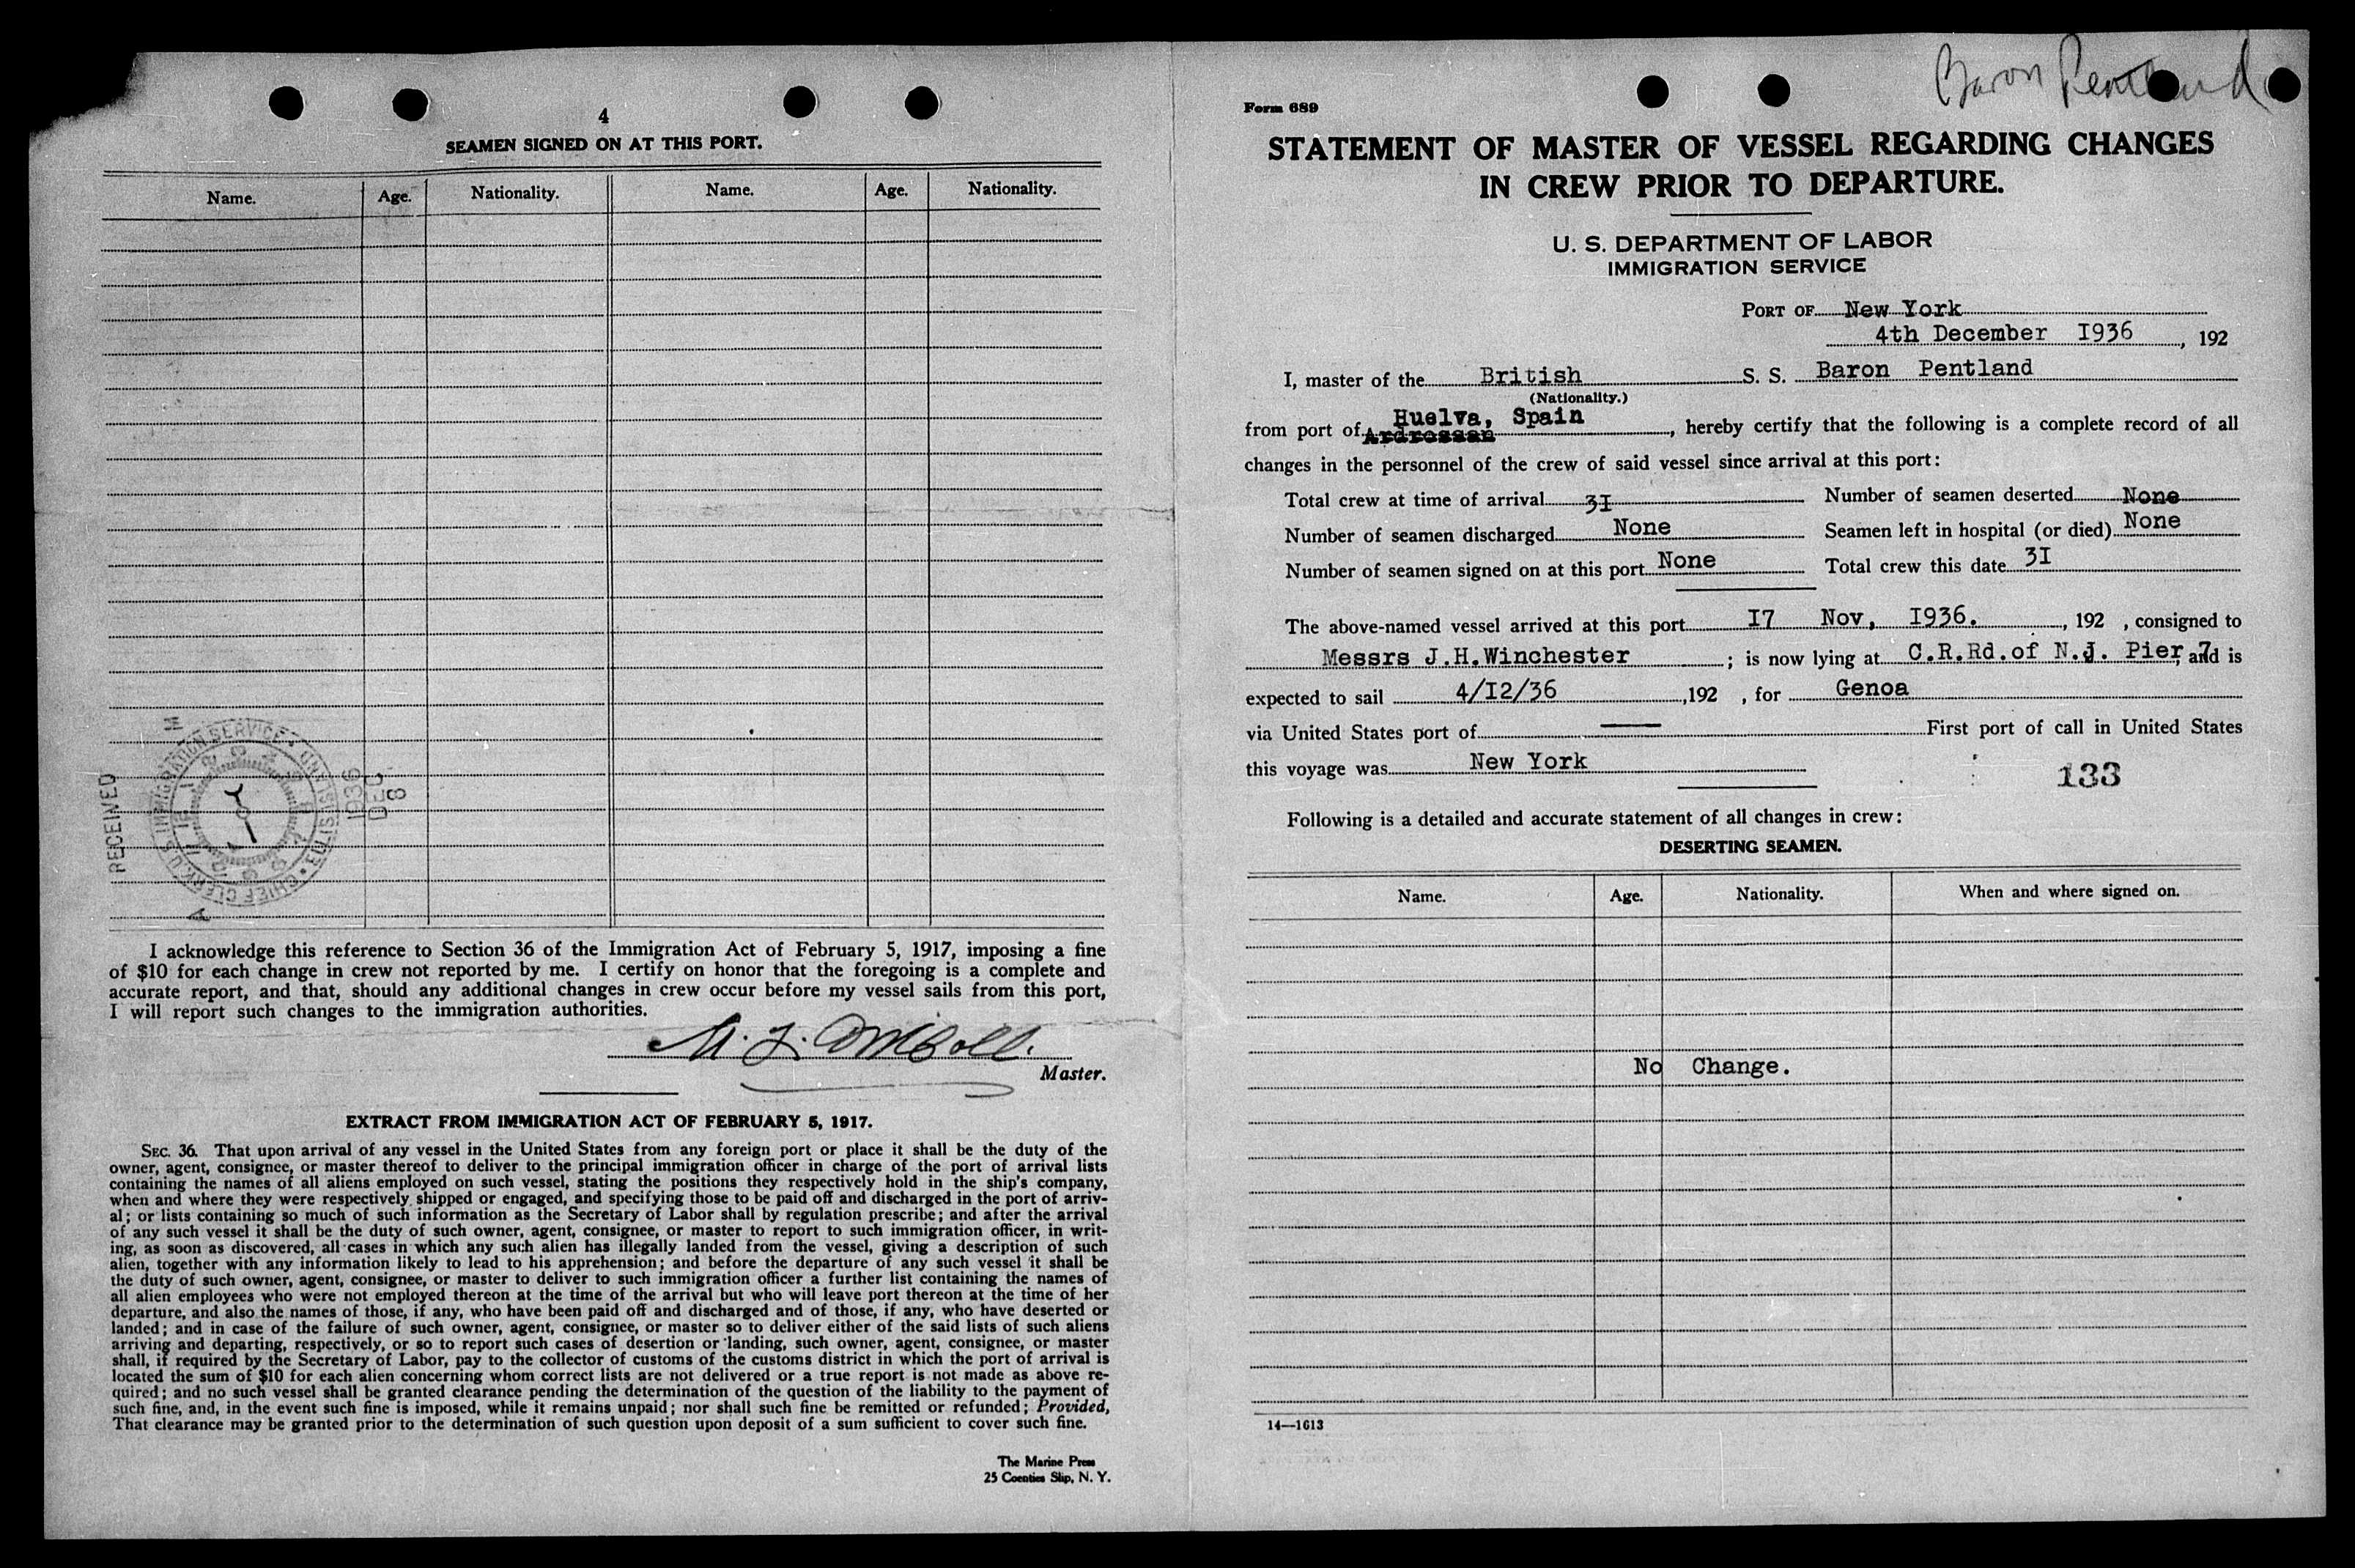 4
SEAMEN SIGNED ON AT THIS PORT.
Name. Age. Nationality. Name. Age. Nationality.
RECEIVED
CHIEF CLERK U S IMMIGRATION SERVICE • ELLIS ISLAND •
A M
1936
DEC
8
I acknowledge this reference to Section 36 of the Immigration Act of February 5, 1917, imposing a fine
of $10 for each change in crew not reported by me. I certify on honor that the foregoing is a complete and
accurate report, and that, should any additional changes in crew occur before my vessel sails from this port,
I will report such changes to the immigration authorities.
Master.
EXTRACT FROM IMMIGRATION ACT OF FEBRUARY 5, 1917.
SEC. 36. That upon arrival of any vessel in the United States from any foreign port or place it shall be the duty of the
owner, agent, consignee, or master thereof to deliver to the principal immigration officer in charge of the port of arrival lists
containing the names of all aliens employed on such vessel, stating the positions they respectively hold in the ship's company,
when and where they were respectively shipped or engaged, and specifying those to be paid off and discharged in the port of arriv-
al; or lists containing so much of such information as the Secretary of Labor shall by regulation prescribe; and after the arrival
of any such vessel it shall be the duty of such owner, agent, consignee, or master to report to such immigration officer, in writ-
ing, as soon as discovered, all cases in which any such alien has illegally landed from the vessel, giving a description of such
alien, together with any information likely to lead to his apprehension; and before the departure of any such vessel it shall be
the duty of such owner, agent, consignee, or master to deliver to such immigration officer a further list containing the names of
all alien employees who were not employed thereon at the time of the arrival but who will leave port thereon at the time of her
departure, and also the names of those, if any, who have been paid off and discharged and of those, if any, who have deserted or
landed; and in case of the failure of such owner, agent, consignee, or master so to deliver either of the said lists of such aliens
arriving and departing, respectively, or so to report such cases of desertion or landing, such owner, agent, consignee, or master
shall, if required by the Secretary of Labor, pay to the collector of customs of the customs district in which the port of arrival is
located the sum of $10 for each alien concerning whom correct lists are not delivered or a true report is not made as above re-
quired; and no such vessel shall be granted clearance pending the determination of the question of the liability to the payment of
such fine, and, in the event such fine is imposed, while it remains unpaid; nor shall such fine be remitted or refunded; Provided,
That clearance may be granted prior to the determination of such question upon deposit of a sum sufficient to cover such fine.
The Marine Press
25 Coenties Slip, N. Y.
Baron Pentland
Form 689
STATEMENT OF MASTER OF VESSEL REGARDING CHANGES
IN CREW PRIOR TO DEPARTURE.
U. S. DEPARTMENT OF LABOR
IMMIGRATION SERVICE
PORT OF New York
4th December I936, 192
I, master of the British S. S. Baron Pentland
(Nationality.)
Huelva, Spain
from port of Ardrossan, hereby certify that the following is a complete record of all
changes in the personnel of the crew of said vessel since arrival at this port:
Total crew at time of arrival 3I Number of seamen deserted None
Number of seamen discharged None Seamen left in hospital (or died) None
Number of seamen signed on at this port None Total crew this date 3I
The above-named vessel arrived at this port I7 Nov, I936. , 192 , consigned to
Messrs J.H.Winchester ; is now lying at C.R.Rd.of N.J. Pier 7, and is
expected to sail 4/I2/36 ,192 , for Genoa
via United States port of — First port of call in United States
this voyage was New York
133
Following is a detailed and accurate statement of all changes in crew:
DESERTING SEAMEN.
Name. Age. Nationality. When and where signed on.
No Change.
14—1613